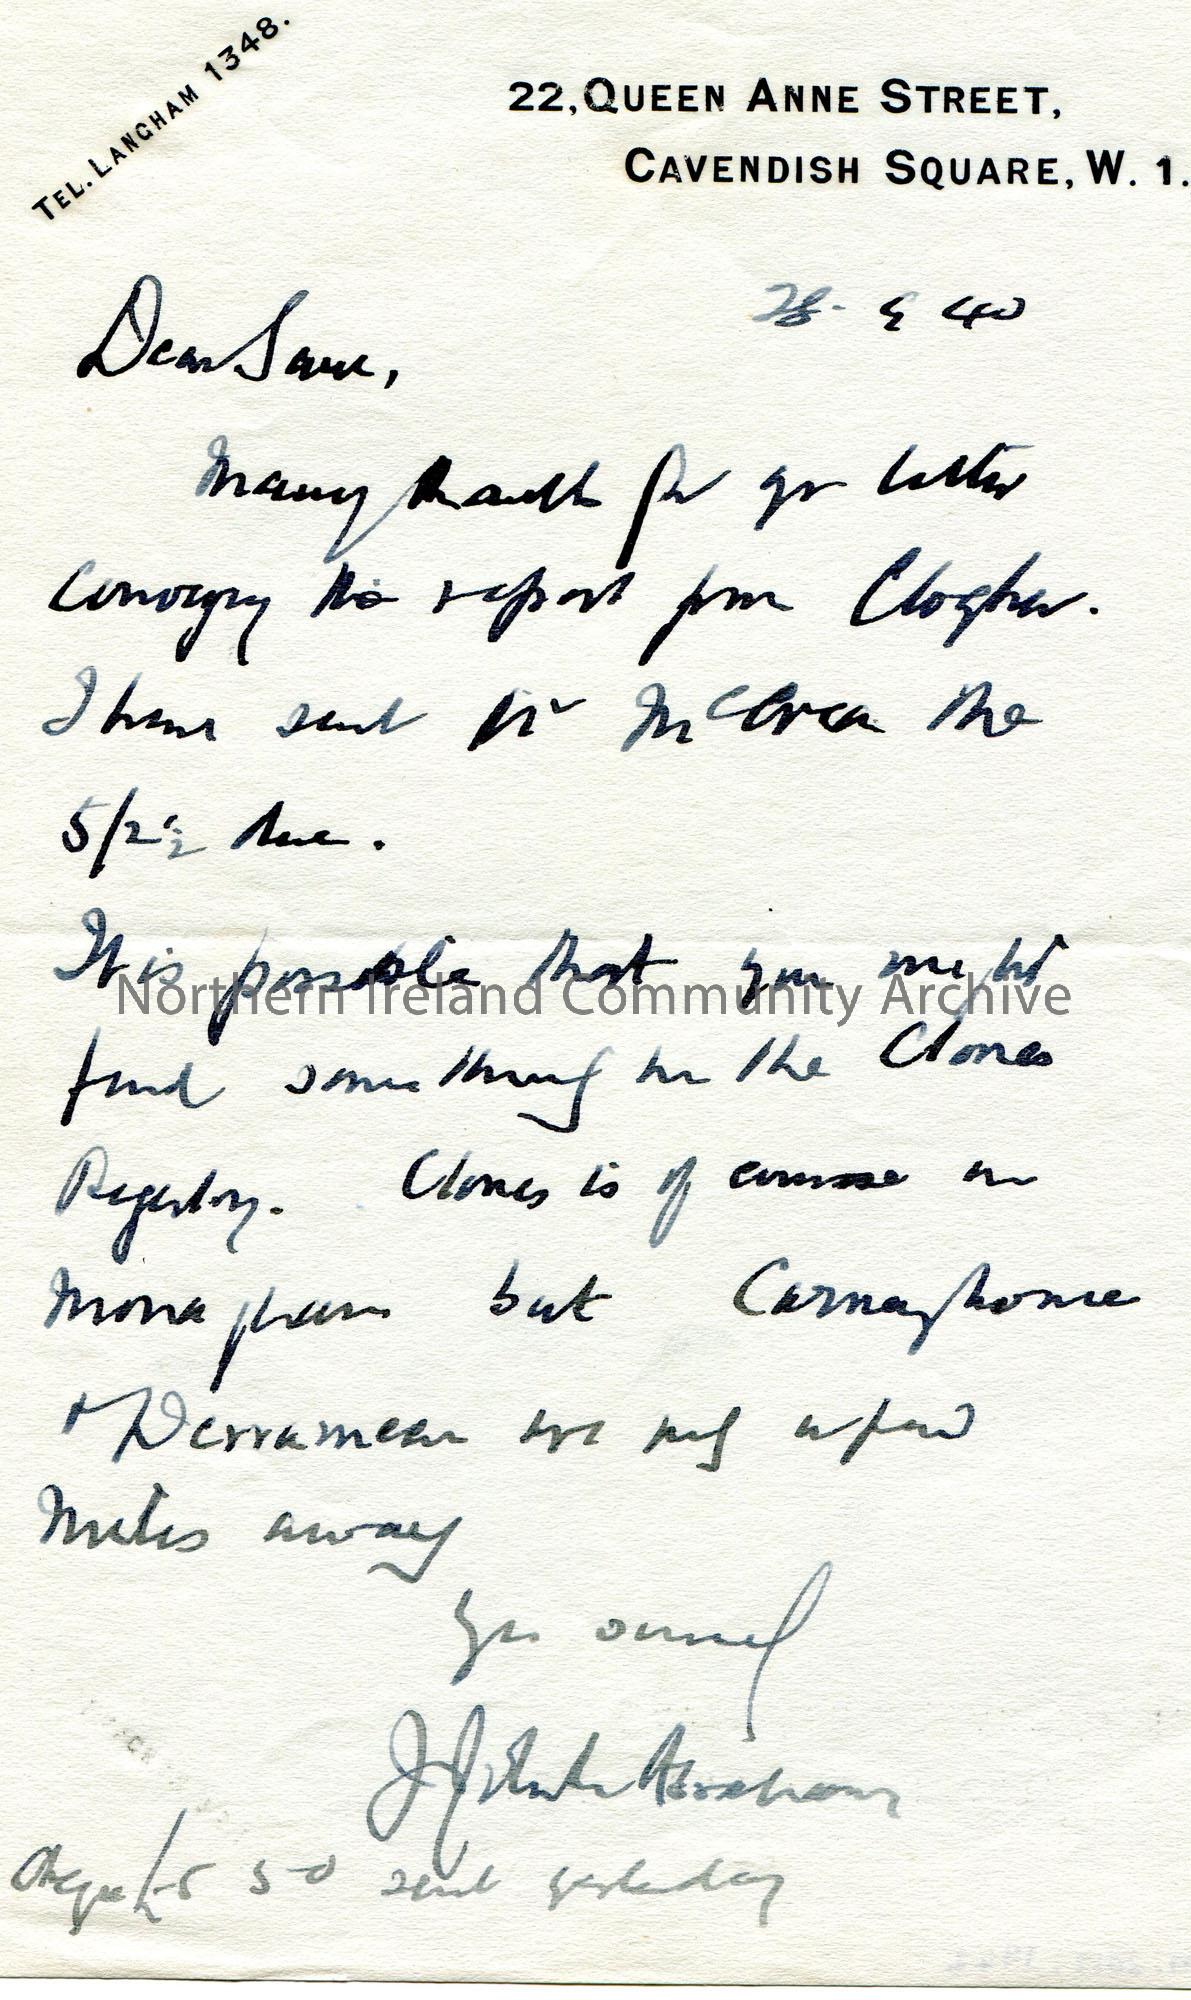 TEL. LANGHAM 1348.
22, QUEEN ANNE STREET,
CAVENDISH SQUARE, W. 1.
28. 40
Dear Sam,
Many thanks for yr letter
conveying the report from Clogher.
I have sent Mr McCrea the
5/2½ due.
It is possible that you might
Northern Ireland Community Archive
find something in the Clones
Registry. Clones is of course in
Monaghan but Carneyhome
+ Derramean are only a few
miles away
Yrs
J Johnston Abraham
Cheque £5 5-0 sent yesterday